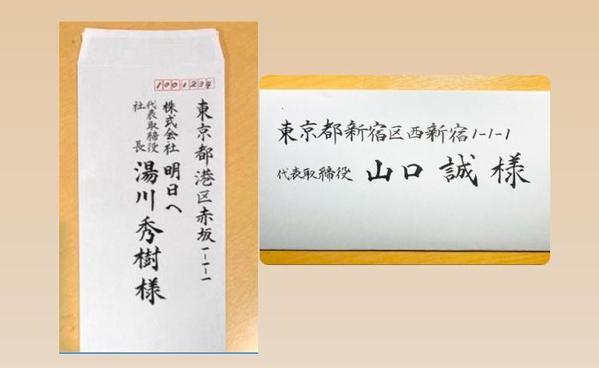 1001234
東京都港区赤坂一-一-一
株式会社 明日へ
代表取締役
社長
湯川秀樹様
東京都新宿区西新宿1-1-1
代表取締役 山口 誠 様